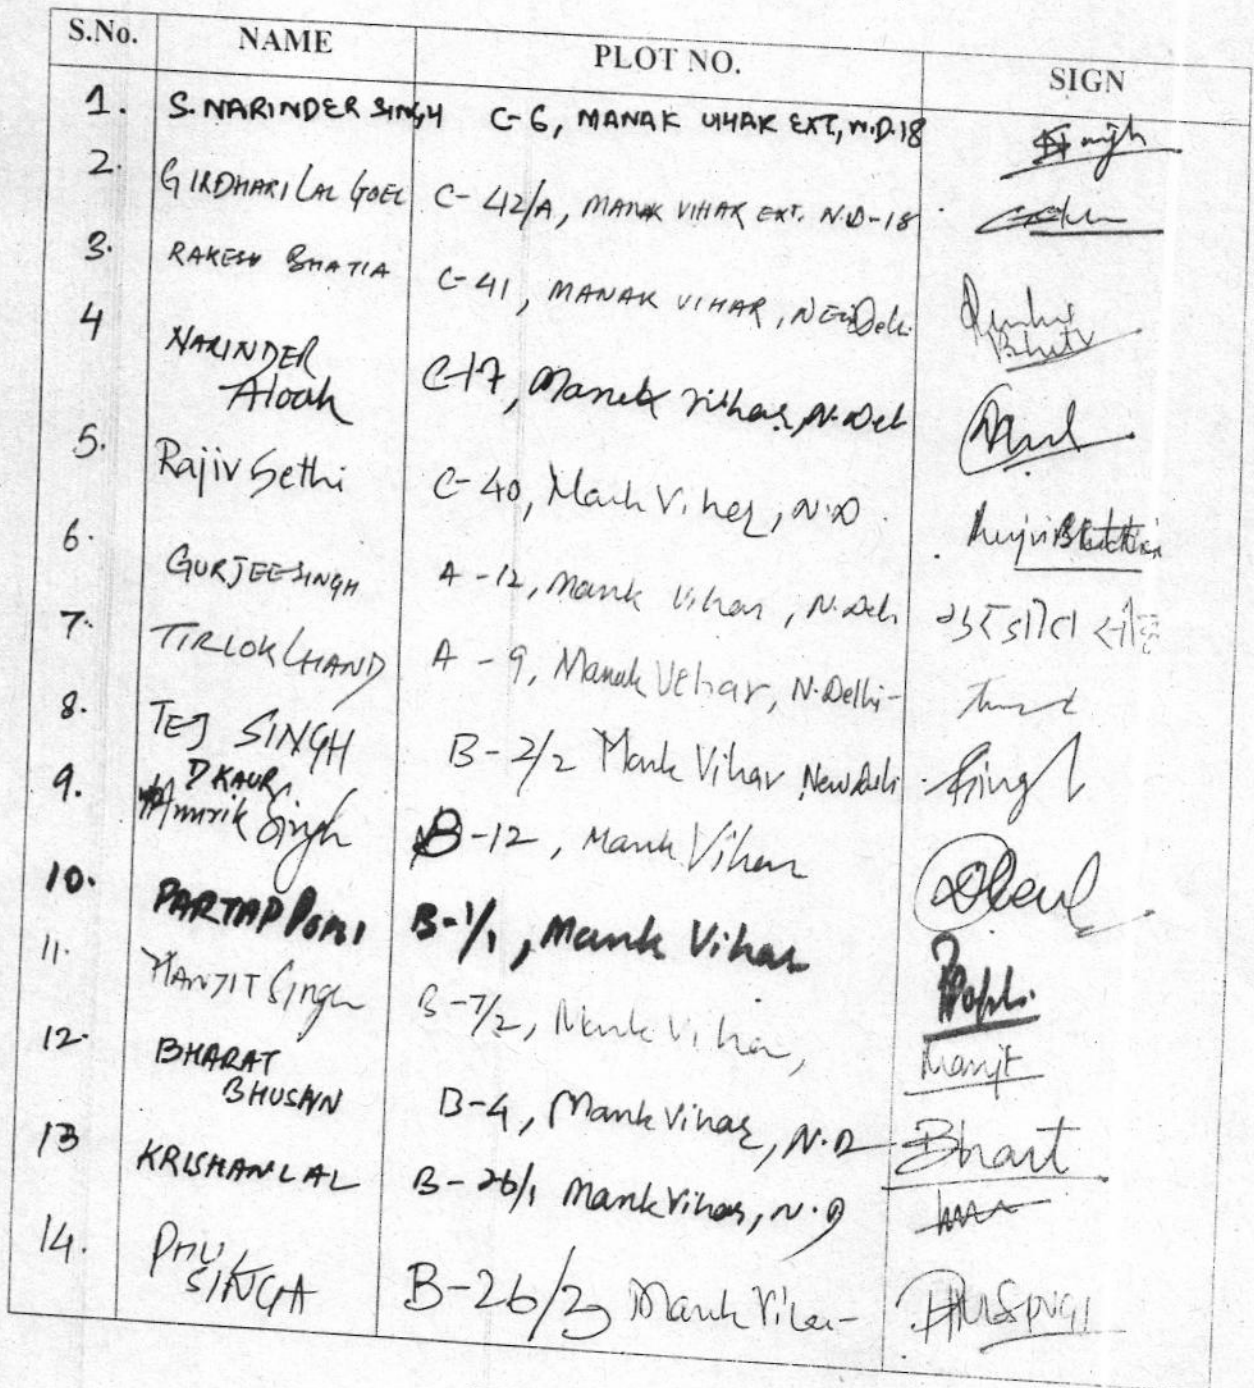 S.No. NAME PLOT NO. SIGN
1. S. NARINDER SINGH C-6, MANAK VIHAR EXT, N.D.18 Singh
2. GIRDHARI LAL GOEL C-42/A, MANAK VIHAR EXT. N.D-18
3. RAKESH BHATIA C-41, MANAK VIHAR, NEW Delhi
4 NARINDER
Aloah C-17, Manak Vihar, N. Del
5. Rajiv Sethi C-40, Mank Vihar, N.D
6. GURJEESINGH A-12, Mank Vihar, N. Delh
7. TIRLOK CHAND A-9, Manak Vehar, N. Delhi-
8. TEJ SINGH B-2/2 Mank Vihar New Delhi Singh
D KAUR
9. Amrik Singh B-12, Mank Vihar
10. PARTAP B-1/1, Mank Vihar
11. MANJIT Singh B-7/2, Mank Vihar, Manjit
12. BHARAT
BHUSHAN B-4, Mank Vihar, N.D Bhart
13 KRISHAN LAL B-26/1 Mank Vihar, N.D
14. PHUL
SINGH B-26/2 Mank Vihar-